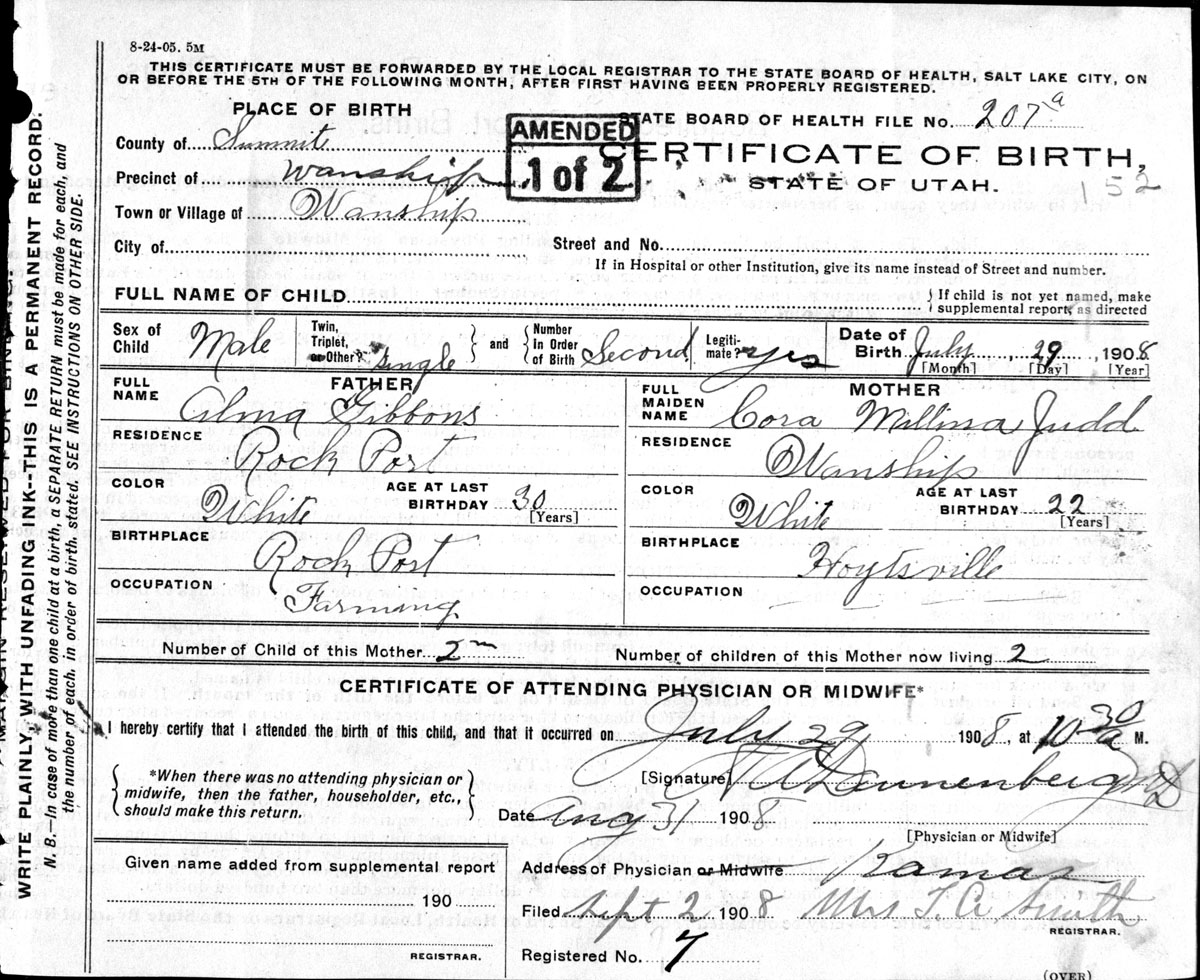 8-24-05. 5M
THIS CERTIFICATE MUST BE FORWARDED BY THE LOCAL REGISTRAR TO THE STATE BOARD OF HEALTH, SALT LAKE CITY, ON
OR BEFORE THE 5TH OF THE FOLLOWING MONTH, AFTER FIRST HAVING BEEN PROPERLY REGISTERED.
PLACE OF BIRTH
STATE BOARD OF HEALTH FILE No. 207 a
County of Summit
AMENDED
1 of 2
CERTIFICATE OF BIRTH,
Precinct of Wanship
STATE OF UTAH.
152
Town or Village of Wanship
City of
Street and No.
If in Hospital or other Institution, give its name instead of Street and number.
FULL NAME OF CHILD
If child is not yet named, make
supplemental report, as directed
Sex of Child Male
Twin, Triplet, or Other? Single
and
Number In Order of Birth Second
Legiti-mate? yes
Date of Birth July, 29, 1908
[Month] [Day] [Year]
FATHER
FULL NAME Alma Gibbons
RESIDENCE Rock Port
COLOR White
AGE AT LAST BIRTHDAY 30
[Years]
BIRTHPLACE Rock Port
OCCUPATION Farming
MOTHER
FULL MAIDEN NAME Cora Millina Judd
RESIDENCE Wanship
COLOR White
AGE AT LAST BIRTHDAY 22
[Years]
BIRTHPLACE Hoytsville
OCCUPATION
Number of Child of this Mother 2
Number of children of this Mother now living 2
CERTIFICATE OF ATTENDING PHYSICIAN OR MIDWIFE*
I hereby certify that I attended the birth of this child, and that it occurred on July 29 1908, at 10 30 a M.
*When there was no attending physician or
midwife, then the father, householder, etc.,
should make this return.
[Signature] Dannenberg MD
Date Aug 31 1908
[Physician or Midwife]
Given name added from supplemental report
190
REGISTRAR.
Address of Physician or Midwife Kamas
Filed Sept 2 1908 Mrs T. A. Smith
REGISTRAR.
Registered No. 7
(OVER)
MARGIN RESERVED FOR BINDING.
WRITE PLAINLY, WITH UNFADING INK--THIS IS A PERMANENT RECORD.
N. B.—In case of more than one child at a birth, a SEPARATE RETURN must be made for each, and
the number of each, in order of birth, stated. SEE INSTRUCTIONS ON OTHER SIDE.